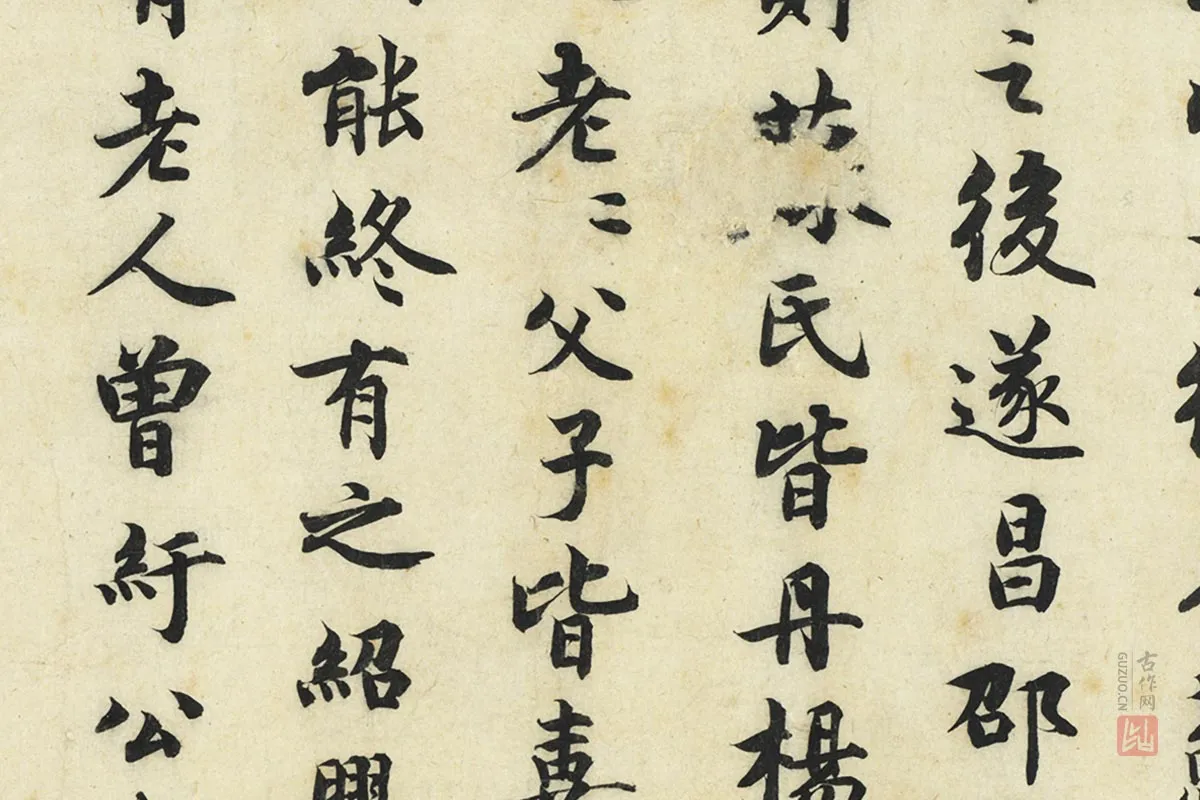 之後遂昌邵
則氏皆丹楊
老〻父子皆喜
能終有之紹興
青老人曾紆公
古作网
GUZUO.CN